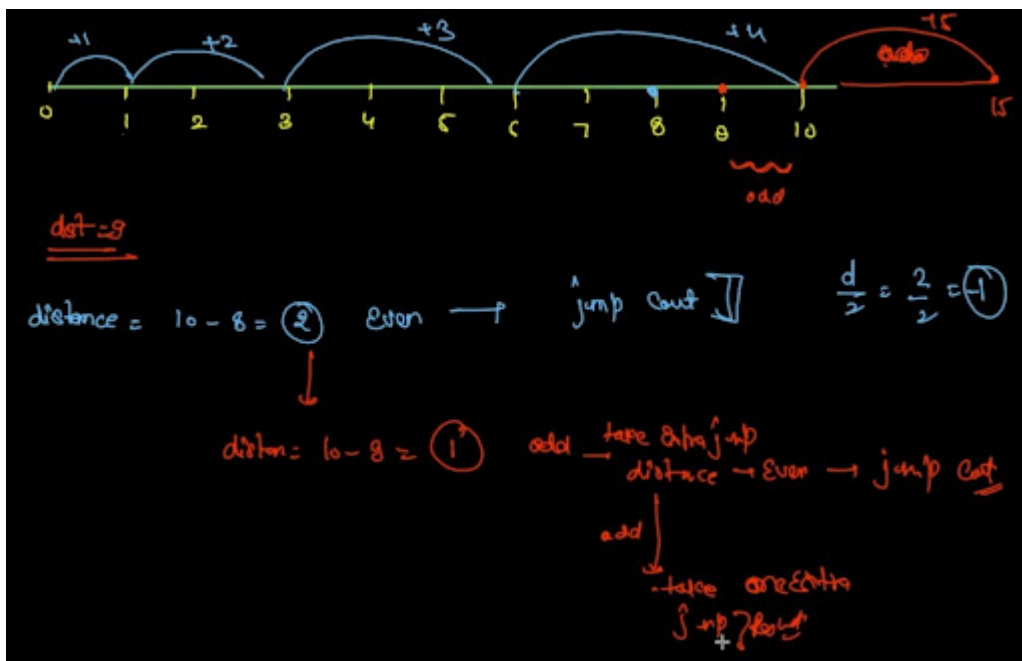 +1 +2 +3 +4 +5
odd
0 1 2 3 4 5 6 7 8 9 10 15
odd
dst = 9
distance = 10 - 8 = 2 Even → jump Cout d/2 = 2/2 = 1
distan = 10 - 9 = 1 odd → take extra jump
distance → Even → jump Cout
odd
take one Extra
jump